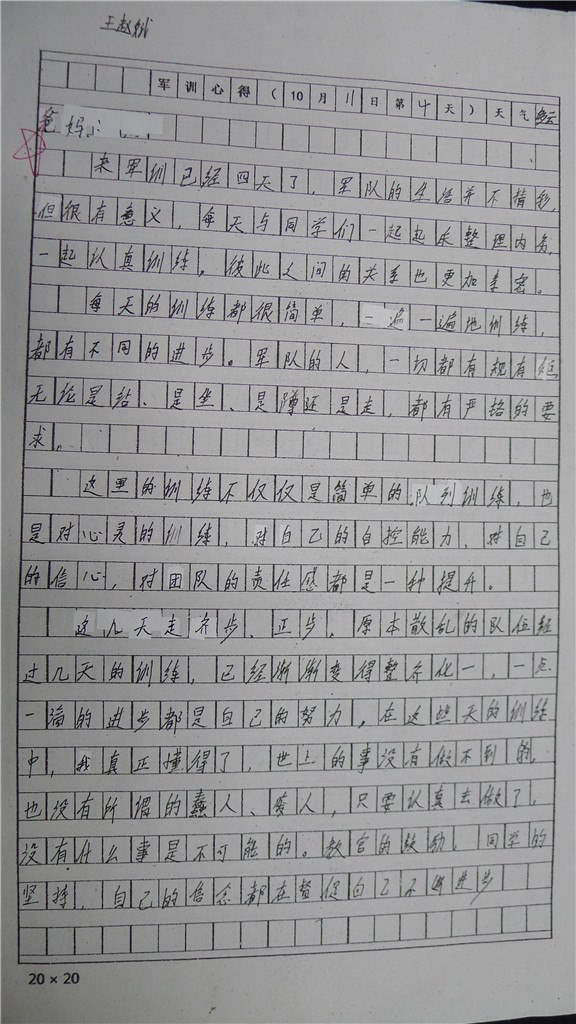 王赵斌
军训心得（10月11日第4天）天气多云
爸妈
来军训已经四天了，军队的生活并不精彩，
但很有意义，每天与同学们一起起床整理内务，
一起认真训练。彼此之间的关系也更加亲密。
每天的训练都很简单，一遍一遍地训练，
都有不同的进步。军队的人，一切都有规有矩
无论是站、是坐、是蹲还是走，都有严格的要
求。
这里的训练不仅仅是简单的队列训练，也
是对心灵的训练，对自己的自控能力，对自己
的信心，对团队的责任感都是一种提升。
这几天走齐步、正步，原本散乱的队伍经
过几天的训练，已经渐渐变得整齐化一，一点
一滴的进步都是自己的努力，在这些天的训练
中，我真正懂得了，世上的事没有做不到的，
也没有所谓的蠢人、废人，只要认真去做了，
没有什么事是不可能的。教官的鼓励，同学的
坚持，自己的信念都在督促自己不断进步
20×20